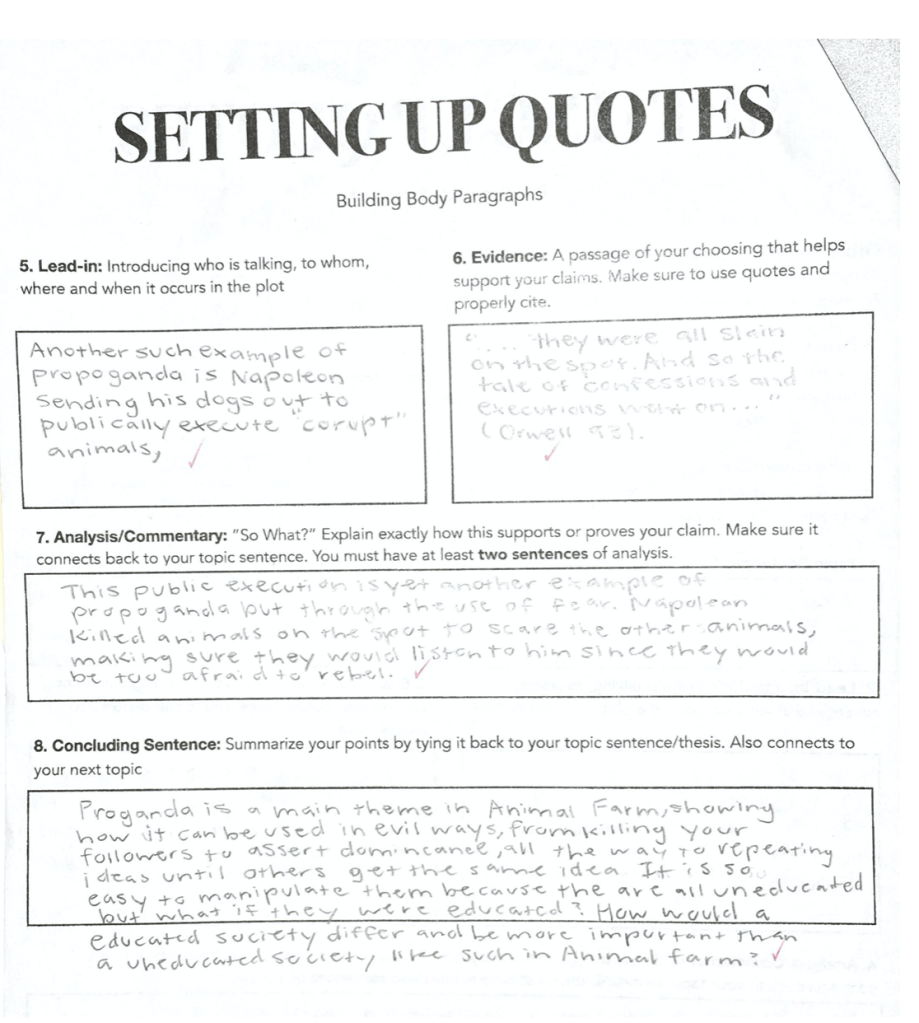 SETTING UP QUOTES
Building Body Paragraphs
5. Lead-in: Introducing who is talking, to whom,
where and when it occurs in the plot
Another such example of
propoganda is Napoleon
sending his dogs out to
publically execute "corupt"
animals,
6. Evidence: A passage of your choosing that helps
support your claims. Make sure to use quotes and
properly cite.
"... they were all slain
on the spot. And so the
tale of confessions and
executions went on..."
(Orwell 93).
7. Analysis/Commentary: "So What?" Explain exactly how this supports or proves your claim. Make sure it
connects back to your topic sentence. You must have at least two sentences of analysis.
This public execution is yet another example of
propoganda but through the use of fear. Napolean
killed animals on the spot to scare the other animals,
making sure they would listen to him since they would
be too afraid to rebel.
8. Concluding Sentence: Summarize your points by tying it back to your topic sentence/thesis. Also connects to
your next topic
Proganda is a main theme in Animal Farm, showing
how it can be used in evil ways, from killing your
followers to assert domincance, all the way to repeating
ideas until others get the same idea. It is so
easy to manipulate them because the are all uneducated
but what if they were educated? How would a
educated society differ and be more important than
a uneducated society like such in Animal farm?